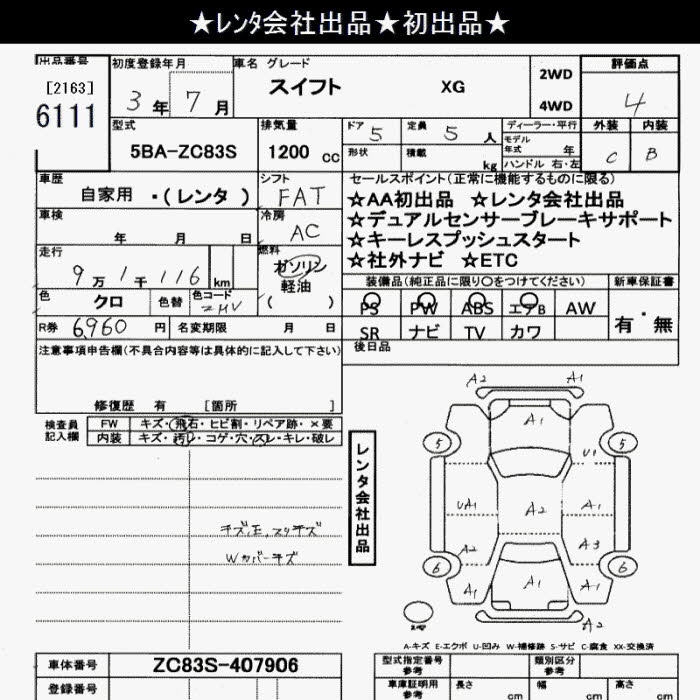 ★レンタ会社出品★初出品★
出品番号 初度登録年月 車名 グレード 評価点
[2163] スイフト XG 2WD
6111 3年 7月 4WD 4
型式 排気量 ドア 5 定員 5人 ディーラー・平行 外装 内装
5BA-ZC83S 1200cc 形状 積載 kg モデル年式 年 C B
ハンドル 右・左
車歴 シフト セールスポイント(正常に機能するものに限る)
自家用・(レンタ) FAT ☆AA初出品 ☆レンタ会社出品
車検 冷房 ☆デュアルセンサーブレーキサポート
年 月 日 AC ☆キーレスプッシュスタート
走行 燃料 ☆社外ナビ ☆ETC
9万1千116km ガソリン 軽油 ( )
装備品(純正品に限り○をつけてください) 新車保証書
色 クロ 色替 色コード ZMV PS PW ABS エアB AW 有・無
R券 6,960円 名変期限 月 日 SR ナビ TV カワ
注意事項申告欄(不具合内容等は具体的に記入して下さい) 後日品
修復歴 有 [箇所 ]
検査員記入欄 FW キズ・飛石・ヒビ割・リペア跡・×要
内装 キズ・汚レ・コゲ・穴・スレ・キレ・破レ
レンタ会社出品
A2 A1
A1
5 5
U1
UA1 A2 A1
A2 A3
6 6
A1 A1 A1
A2
Wカバーキズ
A-キズ E-エクボ U-凹み W-補修跡 S-サビ C-腐食 XX-交換済
車体番号 ZC83S-407906 型式指定番号 参考 類別区分 参考
登録番号 車庫証明用 参考 長さ cm 幅 cm 高さ cm